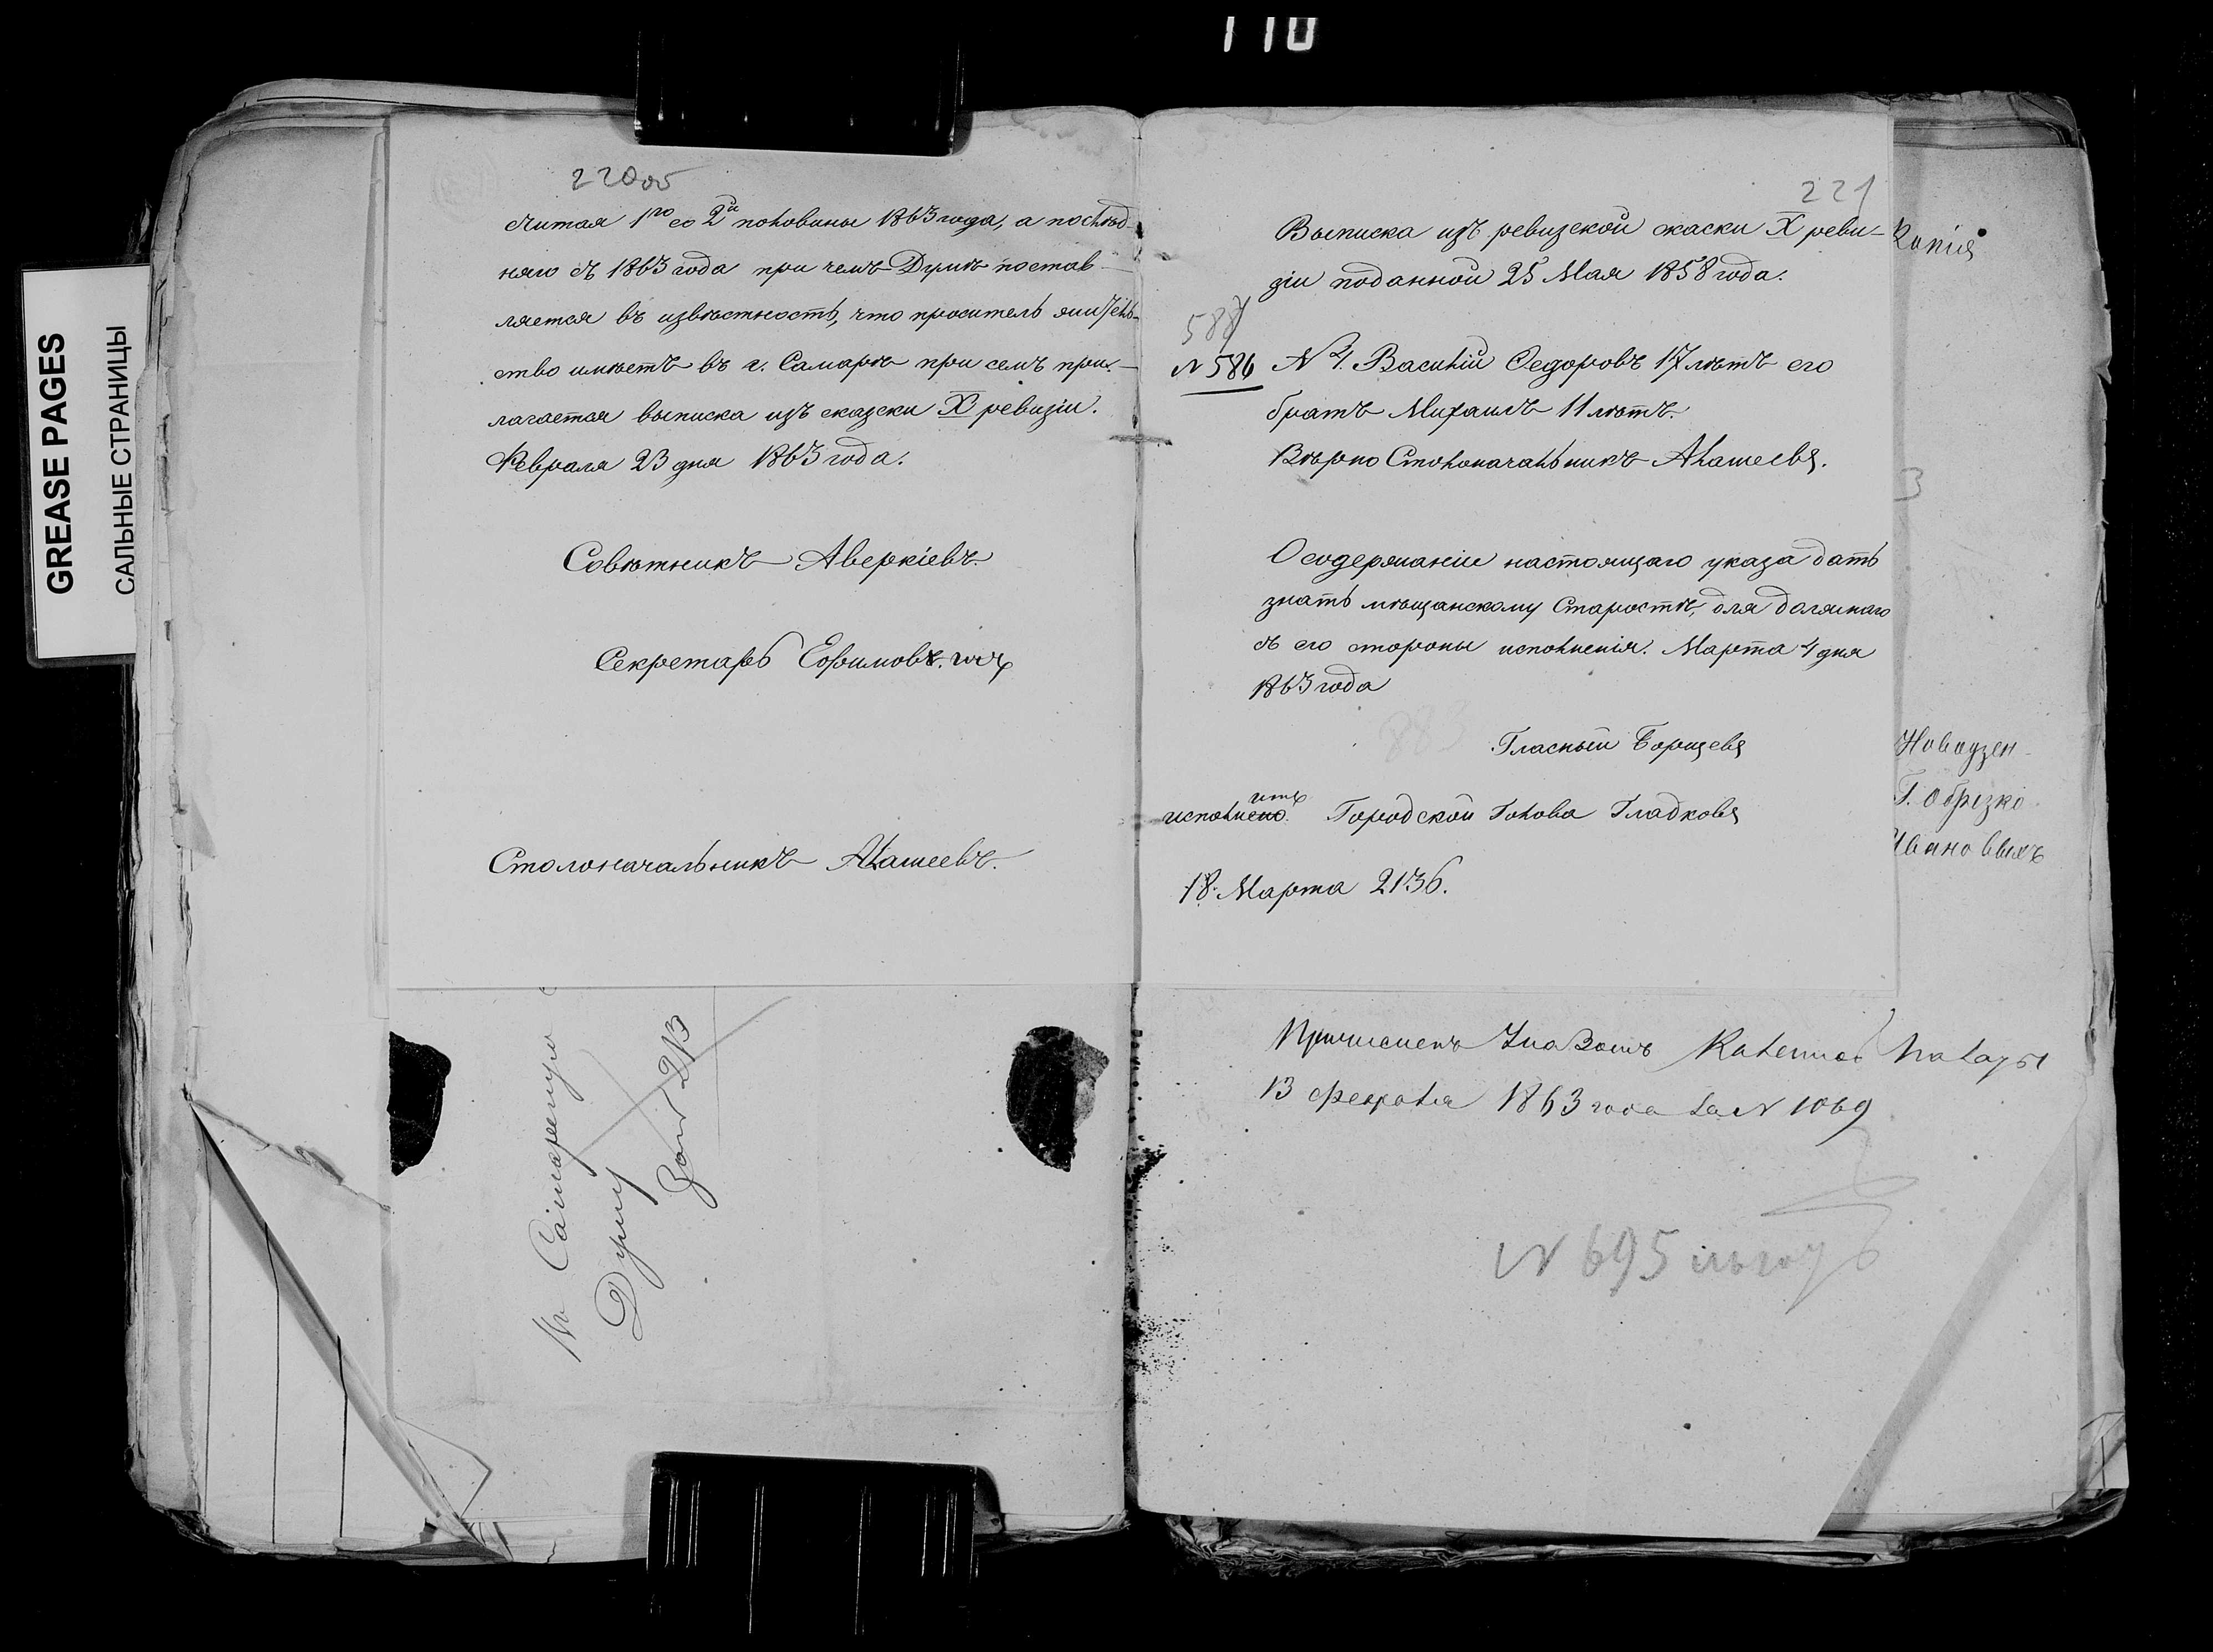 110
GREASE PAGES
САЛЬНЫЕ СТРАНИЦЫ
220об
считая 1го со 2й половины 1863 года, а послѣд-
няго съ 1863 года при чемъ Думѣ постав-
ляется въ извѣстность, что проситель житель-
ство имѣетъ въ г. Самарѣ при семъ при-
лагается выписка изъ сказски X ревизіи.
Февраля 23 дня 1863 года.
Совѣтникъ Аверкіевъ.
Секретарь Ефимовъ.
Столоначальникъ Алашеевъ.
Въ Самарскую
Думу
221
Выписка изъ ревизской скаски X реви-
зіи поданной 25 Мая 1858 года.
587
N 586 N 4. Василій Федоровъ 17 лѣтъ его
братъ Михаилъ 11 лѣтъ.
Вѣрно Столоначальникъ Алашеевъ.
О содержаніи настоящаго указа дать
знать мѣщанскому Старостѣ, для должнаго
съ его стороны исполненія. Марта 4 дня
1863 года
883
Гласный Борщевъ
исполнено. Городской Голова Гладковъ
18 Марта 2136.
Причисленъ Указомъ Казенной Палаты
13 февраля 1863 года за N 1069
N 695
Копія
3
Новоузен
Г. Обрѣзко
Ивановыхъ